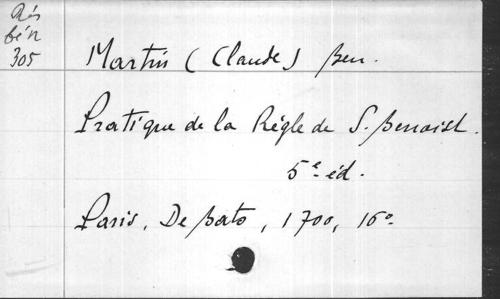 Rés
bén
305
Martin (Claude) Ben.
Pratique de la Règle de S. Benoist.
5e éd.
Paris, De Bats, 1700, 16o